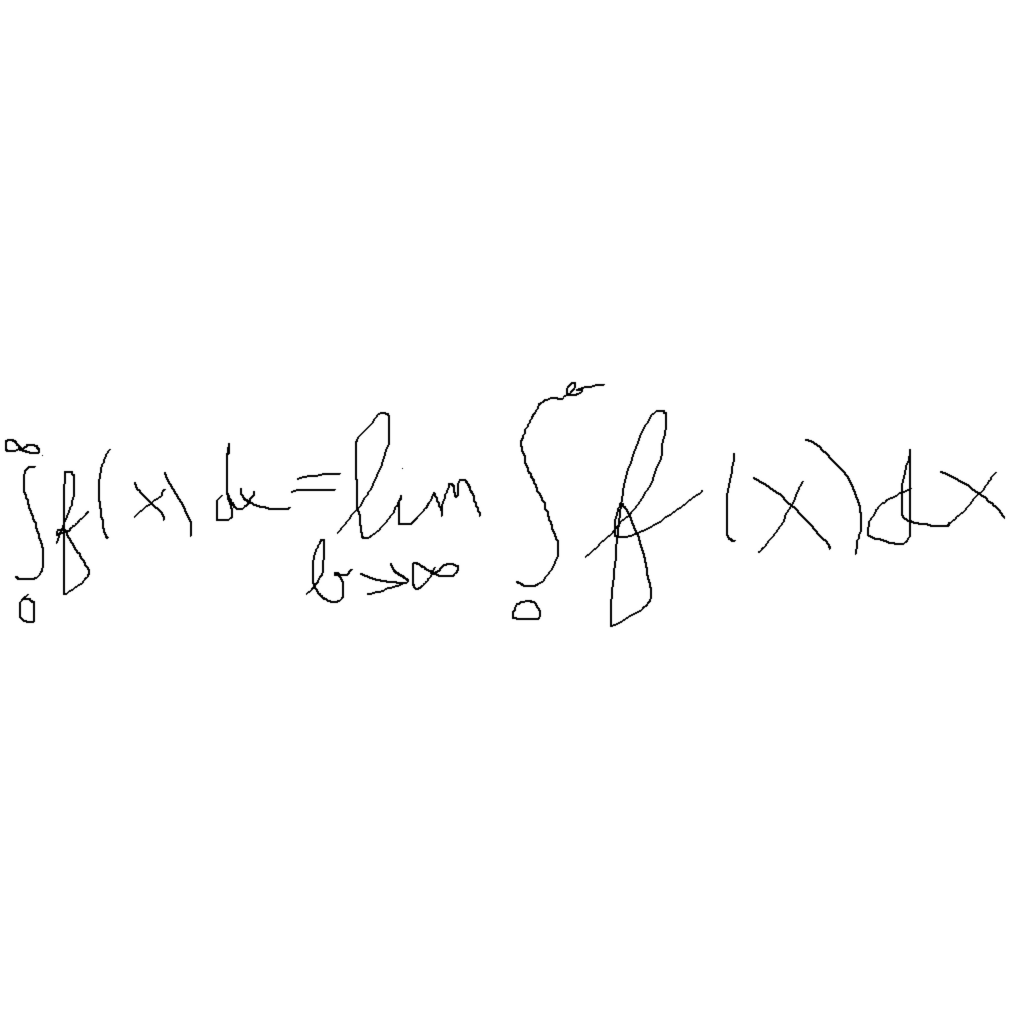 ∫₀^∞ f(x) dx = lim_{b→∞} ∫₀^b f(x) dx